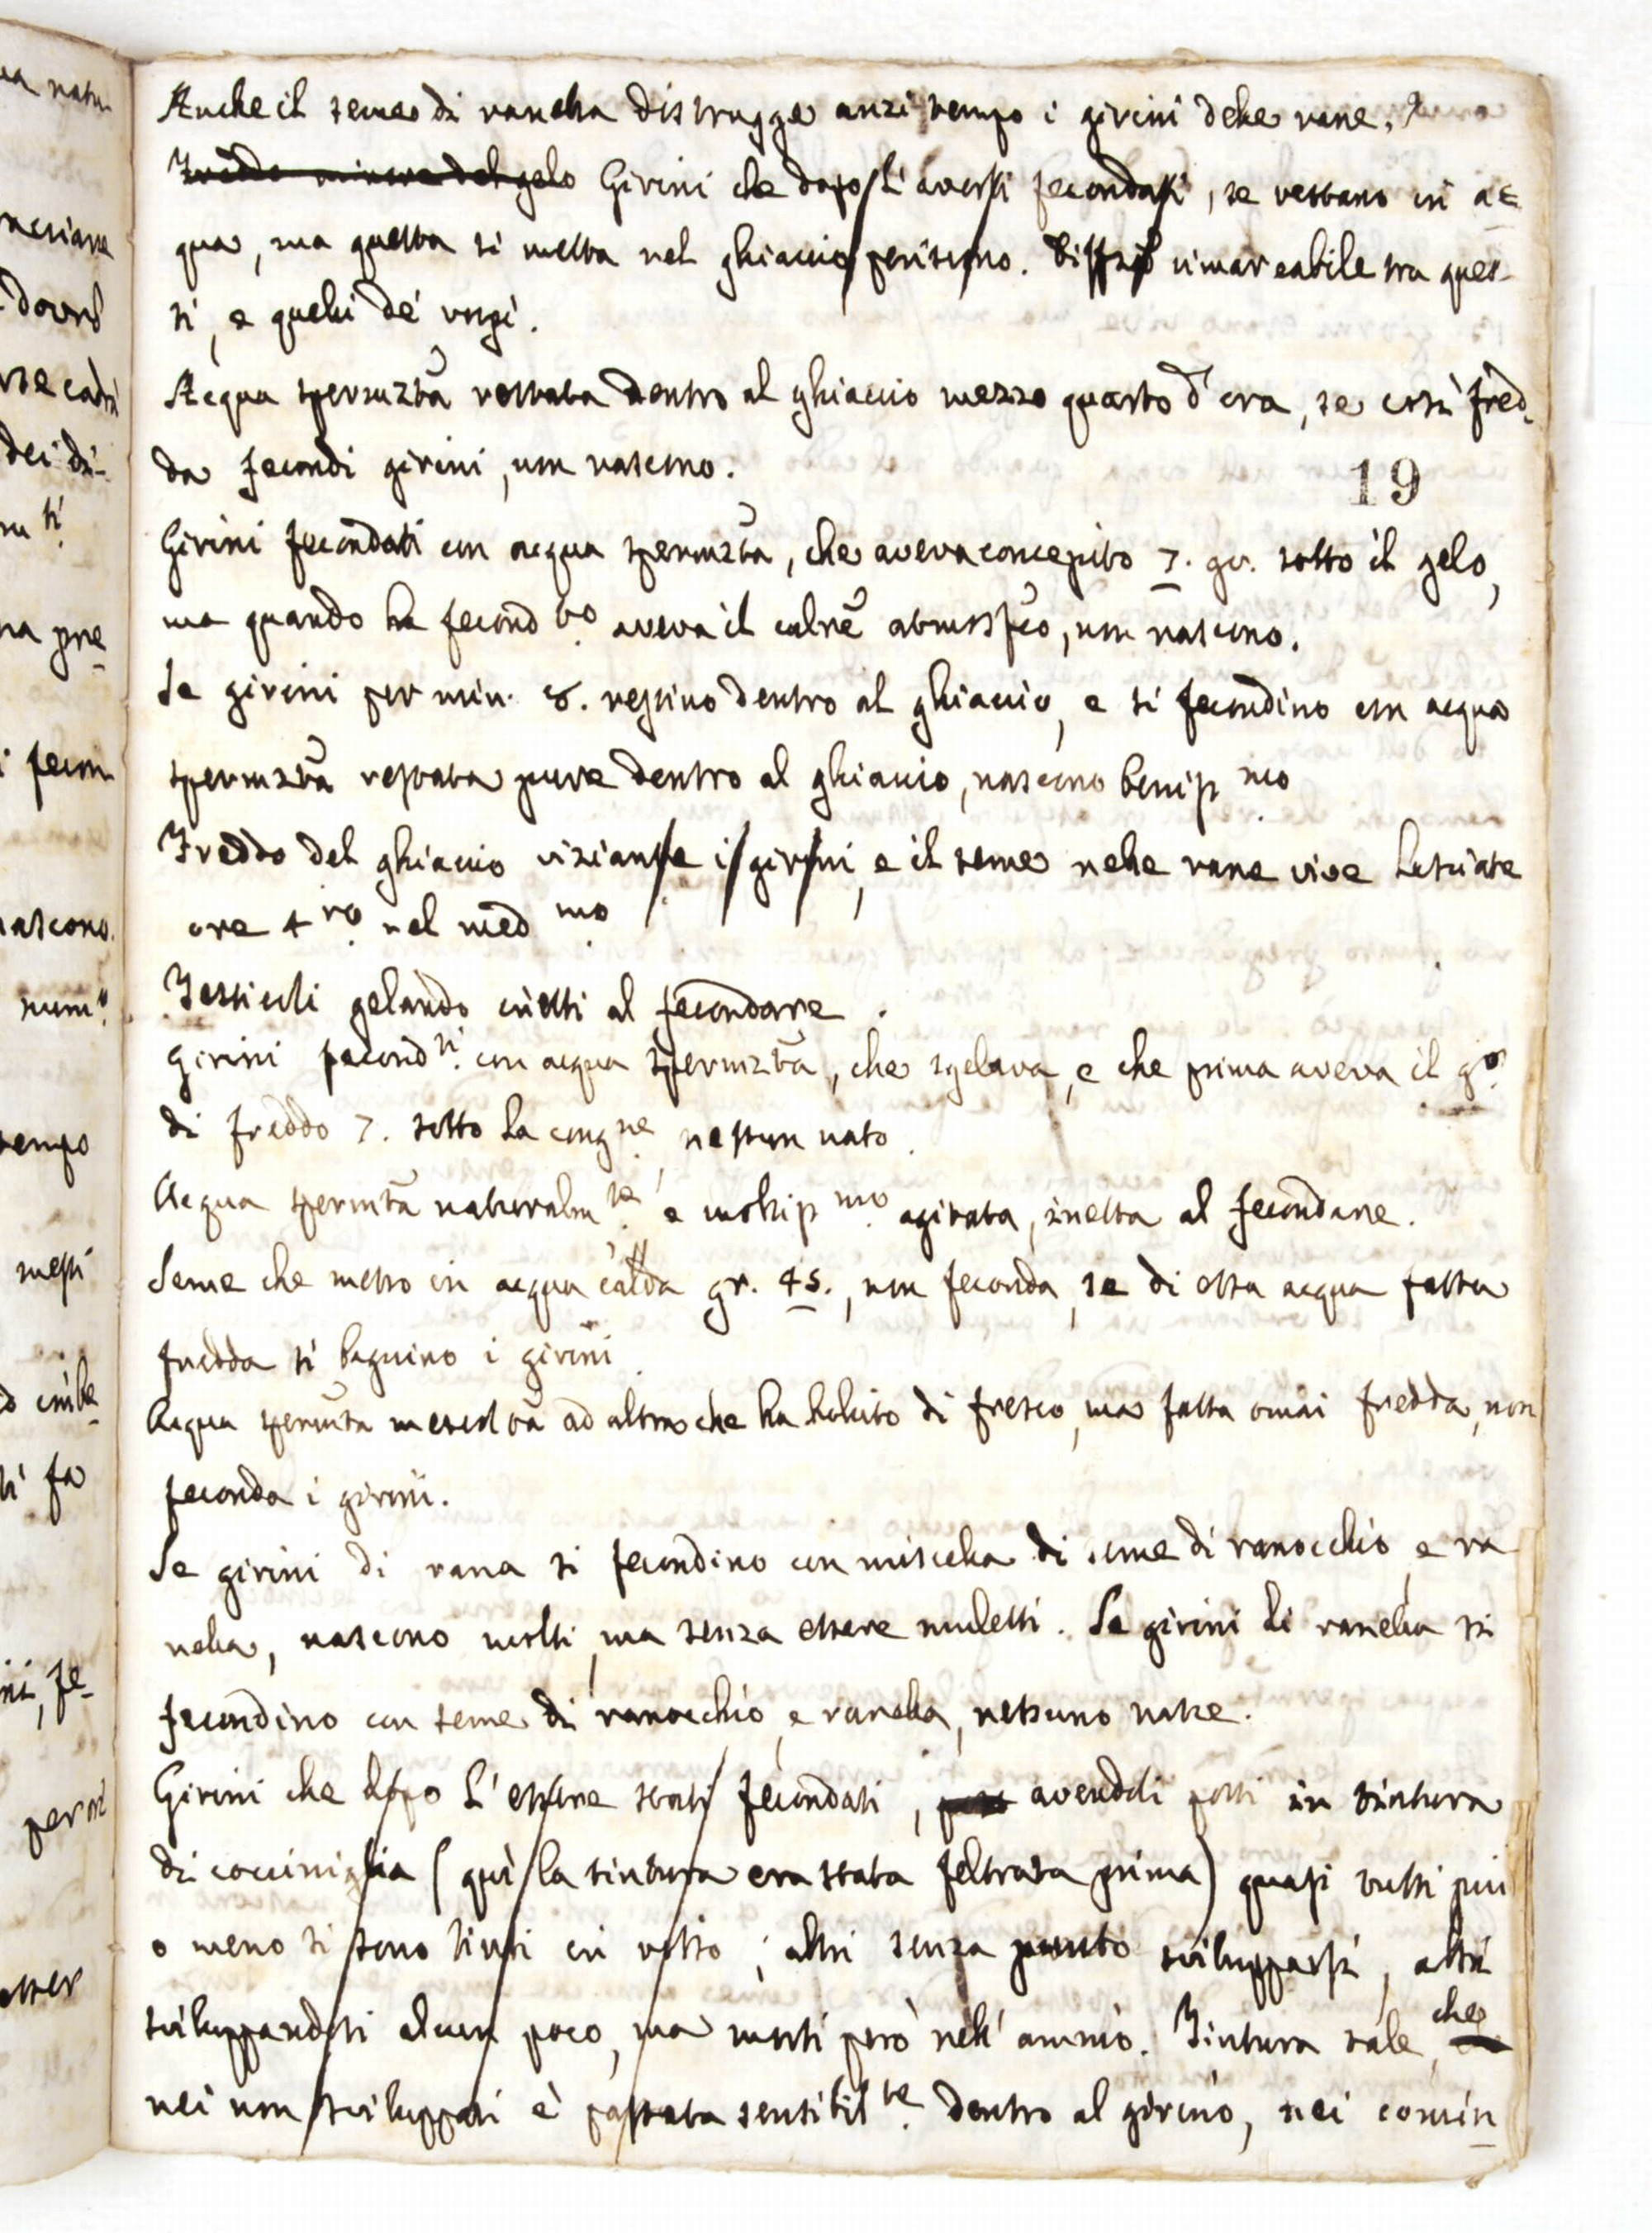 Anche il seme di ranella distrugge anzi tempo i girini delle rane.
Freddo minore del gelo Girini che dopo li aversi fecondati, se restano in ac=
qua, ma questa si metta nel ghiaccio periscono. rimarcabile tra ques-
ti, e quelli de' rospi.
Acqua spermzta restata dentro al ghiaccio mezzo quarto d'ora, se così fred-
da fecondi girini, non nascono.
19
Girini fecondati con acqua spermzta, che aveva concepito 7. gr. sotto il gelo,
ma quando ha fecondto aveva il calre atmosfco, non nascono.
Se girini per min. 8. restino dentro al ghiaccio, e si fecondino con acqua
spermzta restata pure dentro al ghiaccio, nascono beniss.mo
Freddo del ghiaccio viziante i girini, e il seme nelle rane vive lasciate
ore 4 nel med.mo
Testicoli gelando inetti al fecondare.
Girini fecondti con acqua spermzta, che sgelava, e che prima aveva il go.
di freddo 7. sotto la congne, nessun nato.
Acqua spermta naturalmte, e moltiss.mo agitata, inetta al fecondare.
Seme che metto in acqua calda gr. 45., non feconda, se di otta acqua fatta
fredda si bagnino i girini.
Acqua spermta mescolta ad altra che ha bolito di fresco, ma fatta omai fredda, non
feconda i girini.
Se girini di rana si fecondino con miscella di seme di ranocchio, e ra
nella, nascono molti, ma senza essere muletti. Se girini di ranella si
fecondino con seme di ranocchio, e ranella, nessuno nasce.
Girini che dopo l'essere stati fecondati, avendoli posti in tintura
di cocciniglia (quì la tintura era stata feltrata prima) quasi tutti più
o meno si sono tinti in rosso; altri senza punto svilupparsi, altri
sviluppandosi alcun poco, ma morti però nell'amnio. Tintura tale, che
nei non sviluppati è passata sensibilte. dentro al girino, nei comin